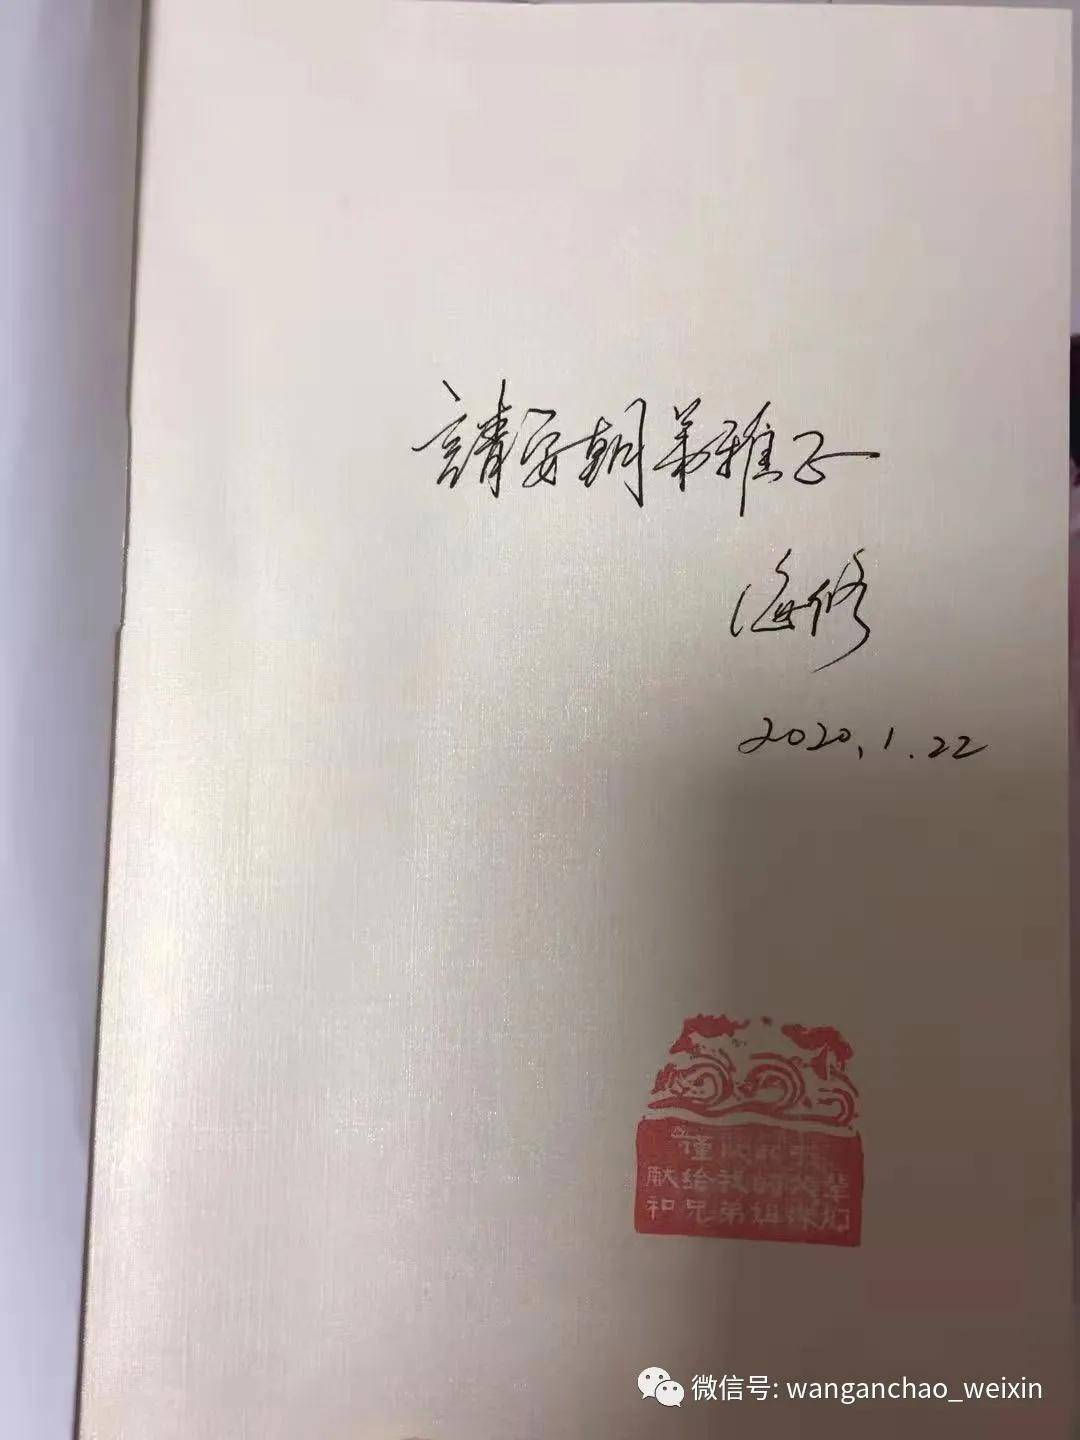 請安朝弟雅正
海修
2020.1.22
谨以此书
献给我的父辈
和兄弟姐妹们
微信号: wanganchao_weixin